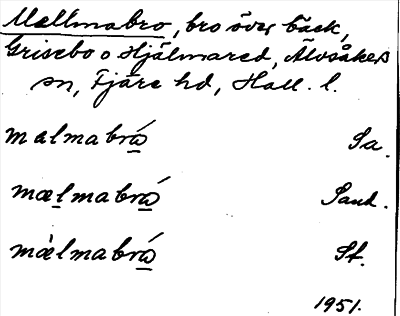 Mellmabro, bro över bäck,
Grisebo o Hjälmared, Älvsåkers
sn, Fjäre hd, Hall. l.
mælmabrá Sa.
mælmabrá Sand.
mælmabrá St.
1951.